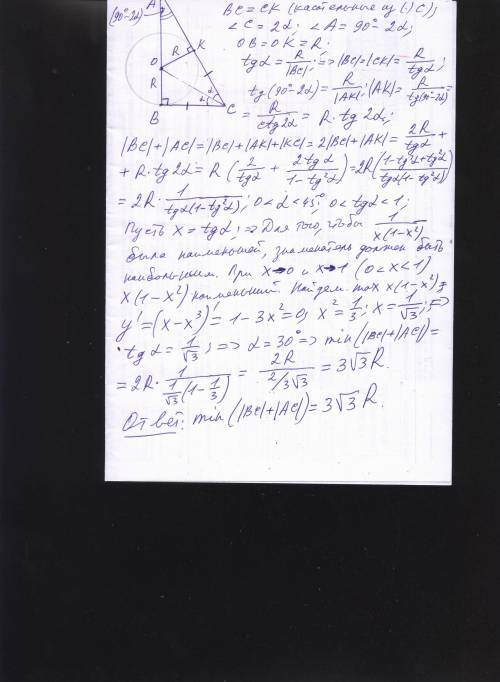 A
(90°-2α)
BC = CK (касательные из (·) C);
∠C = 2α; ∠A = 90° - 2α;
OB = OK = R;
tgα = R/|BC|; => |BC| = |CK| = R/tgα;
tg(90°-2α) = R/|AK|; |AK| = R/tg(90°-2α) =
= R/ctg2α = R·tg2α;
K
R
O
R
α
B
C
|BC|+|AC| = |BC|+|AK|+|KC| = 2|BC|+|AK| = 2R/tgα +
+ R·tg2α = R(2/tgα + 2tgα/(1-tg²α)) = 2R((1-tg²α+tg²α)/(tgα(1-tg²α)))
= 2R · 1/(tgα(1-tg²α)); 0<α<45°; 0<tgα<1;
Пусть x = tgα; => Для того, чтобы 1/(x(1-x²))
была наименьшей, знаменатель должен быть
наибольшим. При x→0 и x→1 (0<x<1)
x(1-x²) наименьший. Найдем max x(1-x²);
y' = (x-x³)' = 1-3x² = 0; x² = 1/3; x = 1/√3; =>
tgα = 1/√3; => α = 30° => min(|BC|+|AC|) =
= 2R · 1/(1/√3(1-1/3)) = 2R/(2/3√3) = 3√3 R.
Ответ: min(|BC|+|AC|) = 3√3 R.